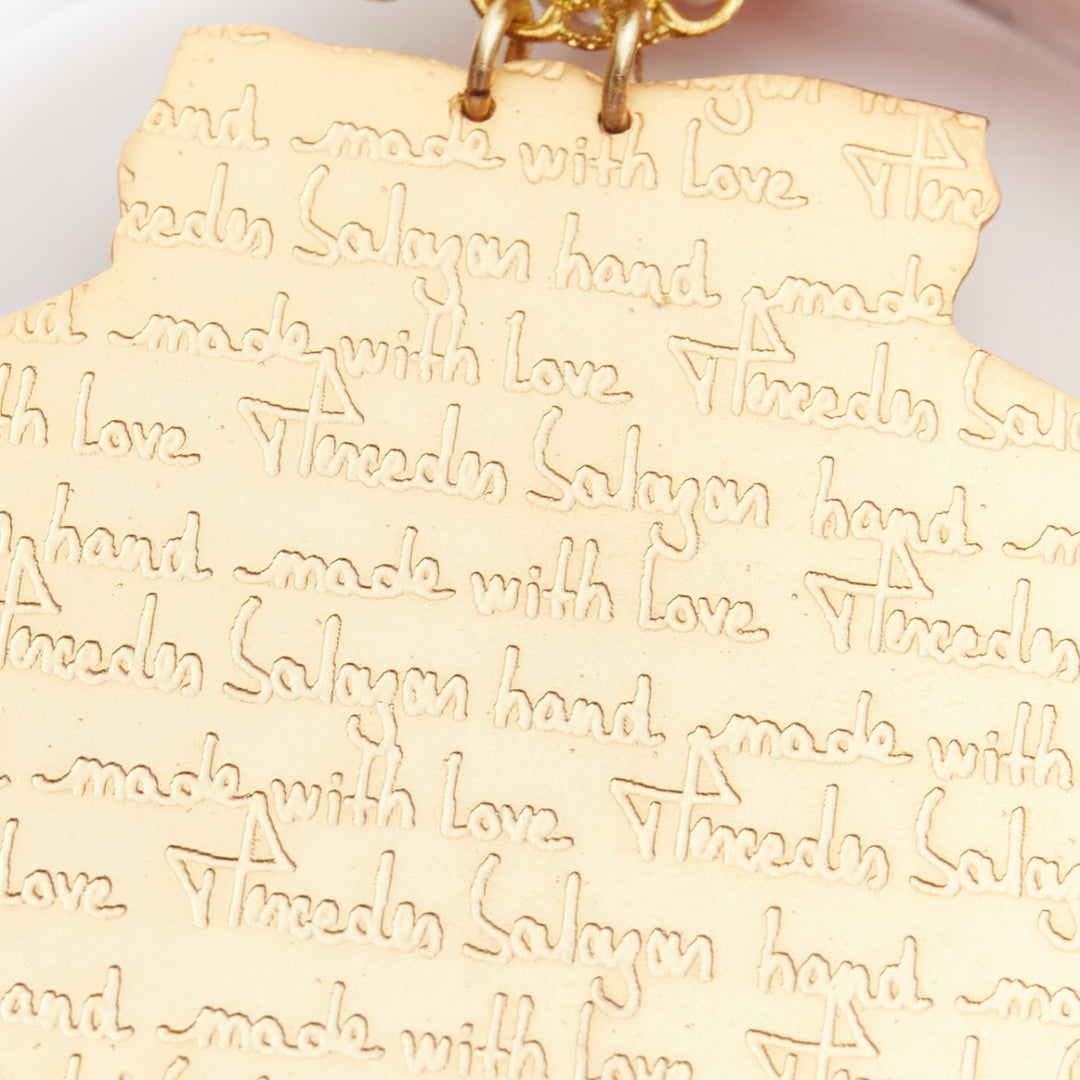 hand made with Love Mercedes
Mercedes Salazar hand made
hand made with Love Mercedes Salazar
with Love Mercedes Salazar hand
hand made with Love Mercedes
Mercedes Salazar hand made with
made with Love Mercedes Salazar
Love Mercedes Salazar hand
hand made with Love